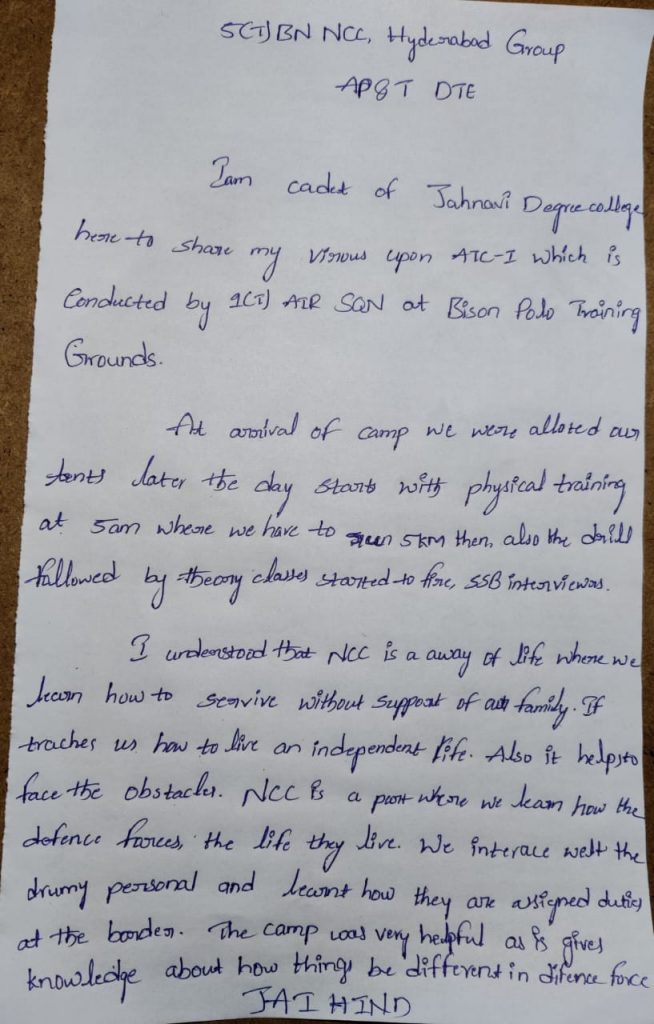 5(T)BN NCC, Hyderabad Group
AP&T DTE
I am cadet of Jahnavi Degree college
here to share my visious upon ATC-I which is
Conducted by 1(T) AIR SQN at Bison Polo Training
Grounds.
At arrival of camp we were alloted our
tents later the day starts with physical training
at 5am where we have to run 5KM then, also the drill
fallowed by theory classes started to fire, SSB interviews.
I understood that NCC is a away of life where we
learn how to servive without support of our family. If
traches us how to live an independent life. Also it helps to
face the obstacles. NCC is a part where we learn how the
defence forces, the life they live. We interace welt the
drumy personal and learnt how they are assigned duties
at the border. The camp was very helpful as is gives
knowledge about how things be different in difence force
JAI HIND